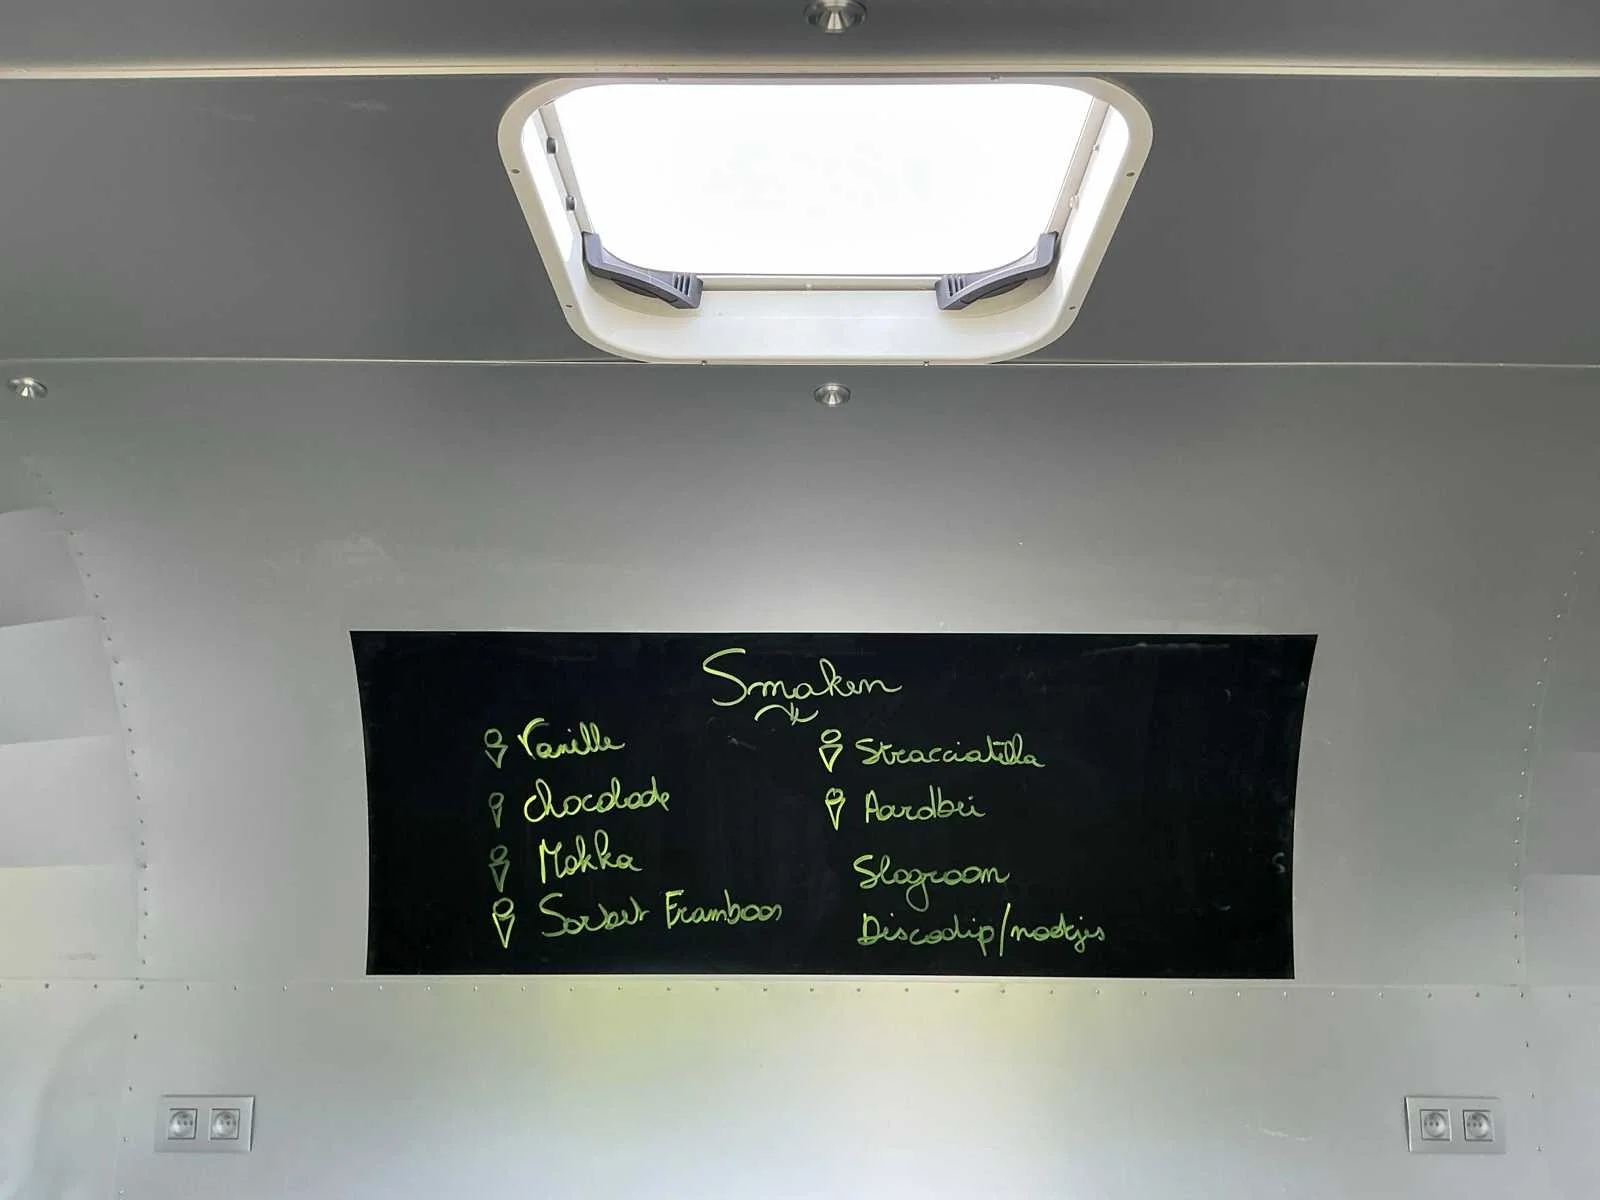 Smaken
Vanille
chocolade
Mokka
Sorbet Framboos
Stracciatella
Aardbei
Slagroom
Discodip/nootjes